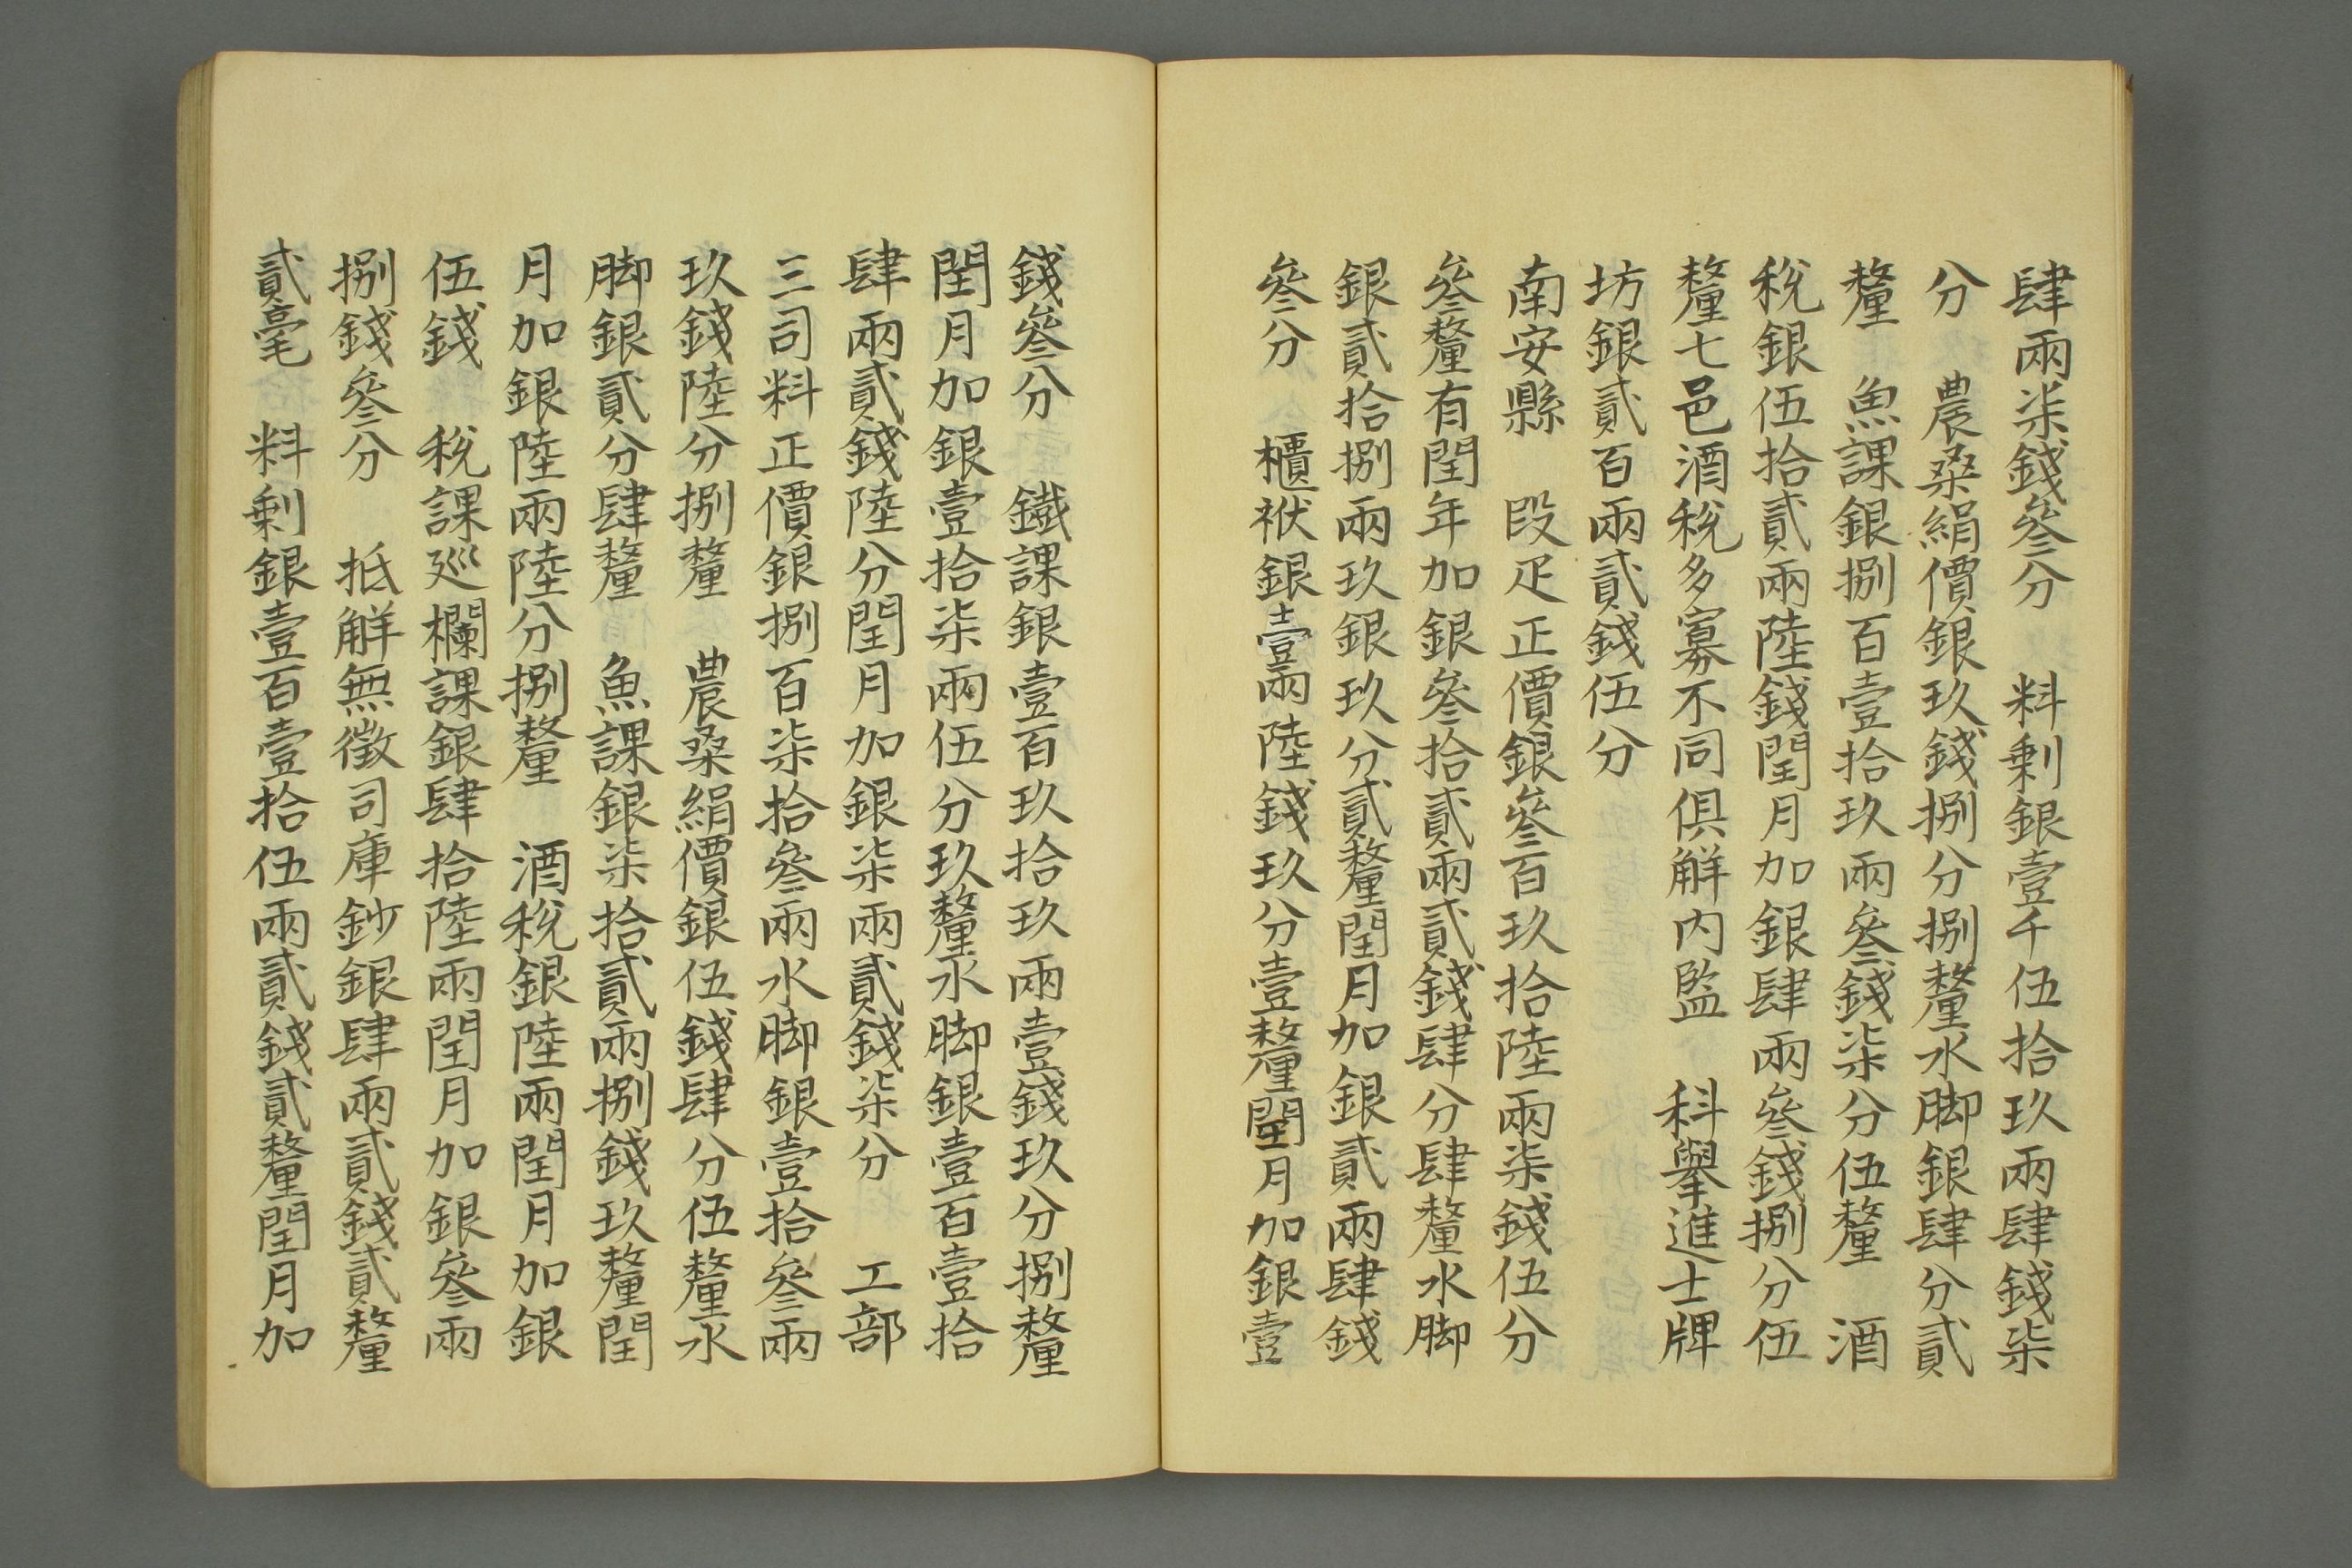 肆兩柒錢叄分　料剩銀壹千伍拾玖兩肆錢柒
分　農桑絹價銀玖錢捌分捌釐水脚銀肆分貳
釐　魚課銀捌百壹拾玖兩叄錢柒分伍釐　酒
稅銀伍拾貳兩陸錢閏月加銀肆兩叄錢捌分伍
釐七邑酒稅多寡不同俱解内監　科舉進士牌
坊銀貳百兩貳錢伍分
南安縣　段疋正價銀叄百玖拾陸兩柒錢伍分
叄釐有閏年加銀叄拾貳兩貳錢肆分肆釐水脚
銀貳拾捌兩玖銀玖分貳釐閏月加銀貳兩肆錢
叄分　櫃袱銀壹兩陸錢玖分壹釐閏月加銀壹
錢叄分　鐵課銀壹百玖拾玖兩壹錢玖分捌釐
閏月加銀壹拾柒兩伍分玖釐水脚銀壹百壹拾
肆兩貳錢陸分閏月加銀柒兩貳錢柒分　工部
三司料正價銀捌百柒拾叄兩水脚銀壹拾叄兩
玖錢陸分捌釐　農桑絹價銀伍錢肆分伍釐水
脚銀貳分肆釐　魚課銀柒拾貳兩捌錢玖釐閏
月加銀陸兩陸分捌釐　酒稅銀陸兩閏月加銀
伍錢　稅課廵欄課銀肆拾陸兩閏月加銀叄兩
捌錢叄分　抵解無徵司庫鈔銀肆兩貳錢貳釐
貳毫　料剩銀壹百壹拾伍兩貳錢貳釐閏月加